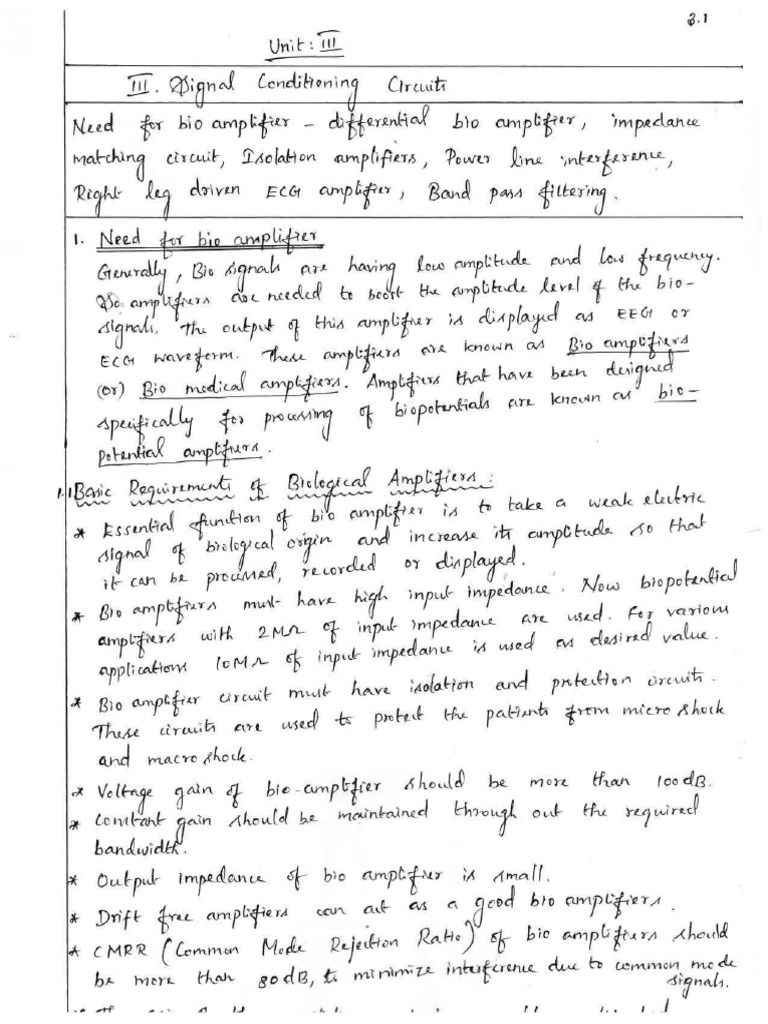 3.1
Unit: III
III. Signal Conditioning Circuits
Need for bio amplifier - differential bio amplifier, impedance
matching circuit, Isolation amplifiers, Power line interference,
Right leg driven ECG amplifier, Band pass filtering.
1. Need for bio amplifier
Generally, Bio signals are having low amplitude and low frequency.
So amplifiers are needed to boost the amplitude level of the bio-
signals. The output of this amplifier is displayed as EEG or
ECG waveform. These amplifiers are known as Bio amplifiers
(or) Bio medical amplifiers. Amplifiers that have been designed
specifically for processing of biopotentials are known as bio-
potential amplifiers.
1.1 Basic Requirements of Biological Amplifiers:
* Essential function of bio amplifier is to take a weak electric
signal of biological origin and increase its amplitude so that
it can be processed, recorded or displayed.
* Bio amplifiers must have high input impedance. Now biopotential
amplifiers with 2MΩ of input impedance are used. For various
applications 10MΩ of input impedance is used as desired value.
* Bio amplifier circuit must have isolation and protection circuits.
These circuits are used to protect the patients from micro shock
and macro shock.
* Voltage gain of bio-amplifier should be more than 100dB.
* Constant gain should be maintained through out the required
bandwidth.
* Output impedance of bio amplifier is small.
* Drift free amplifiers can act as a good bio amplifiers.
* CMRR (Common Mode Rejection Ratio) of bio amplifiers should
be more than 80dB, to minimize interference due to common mode
signals.